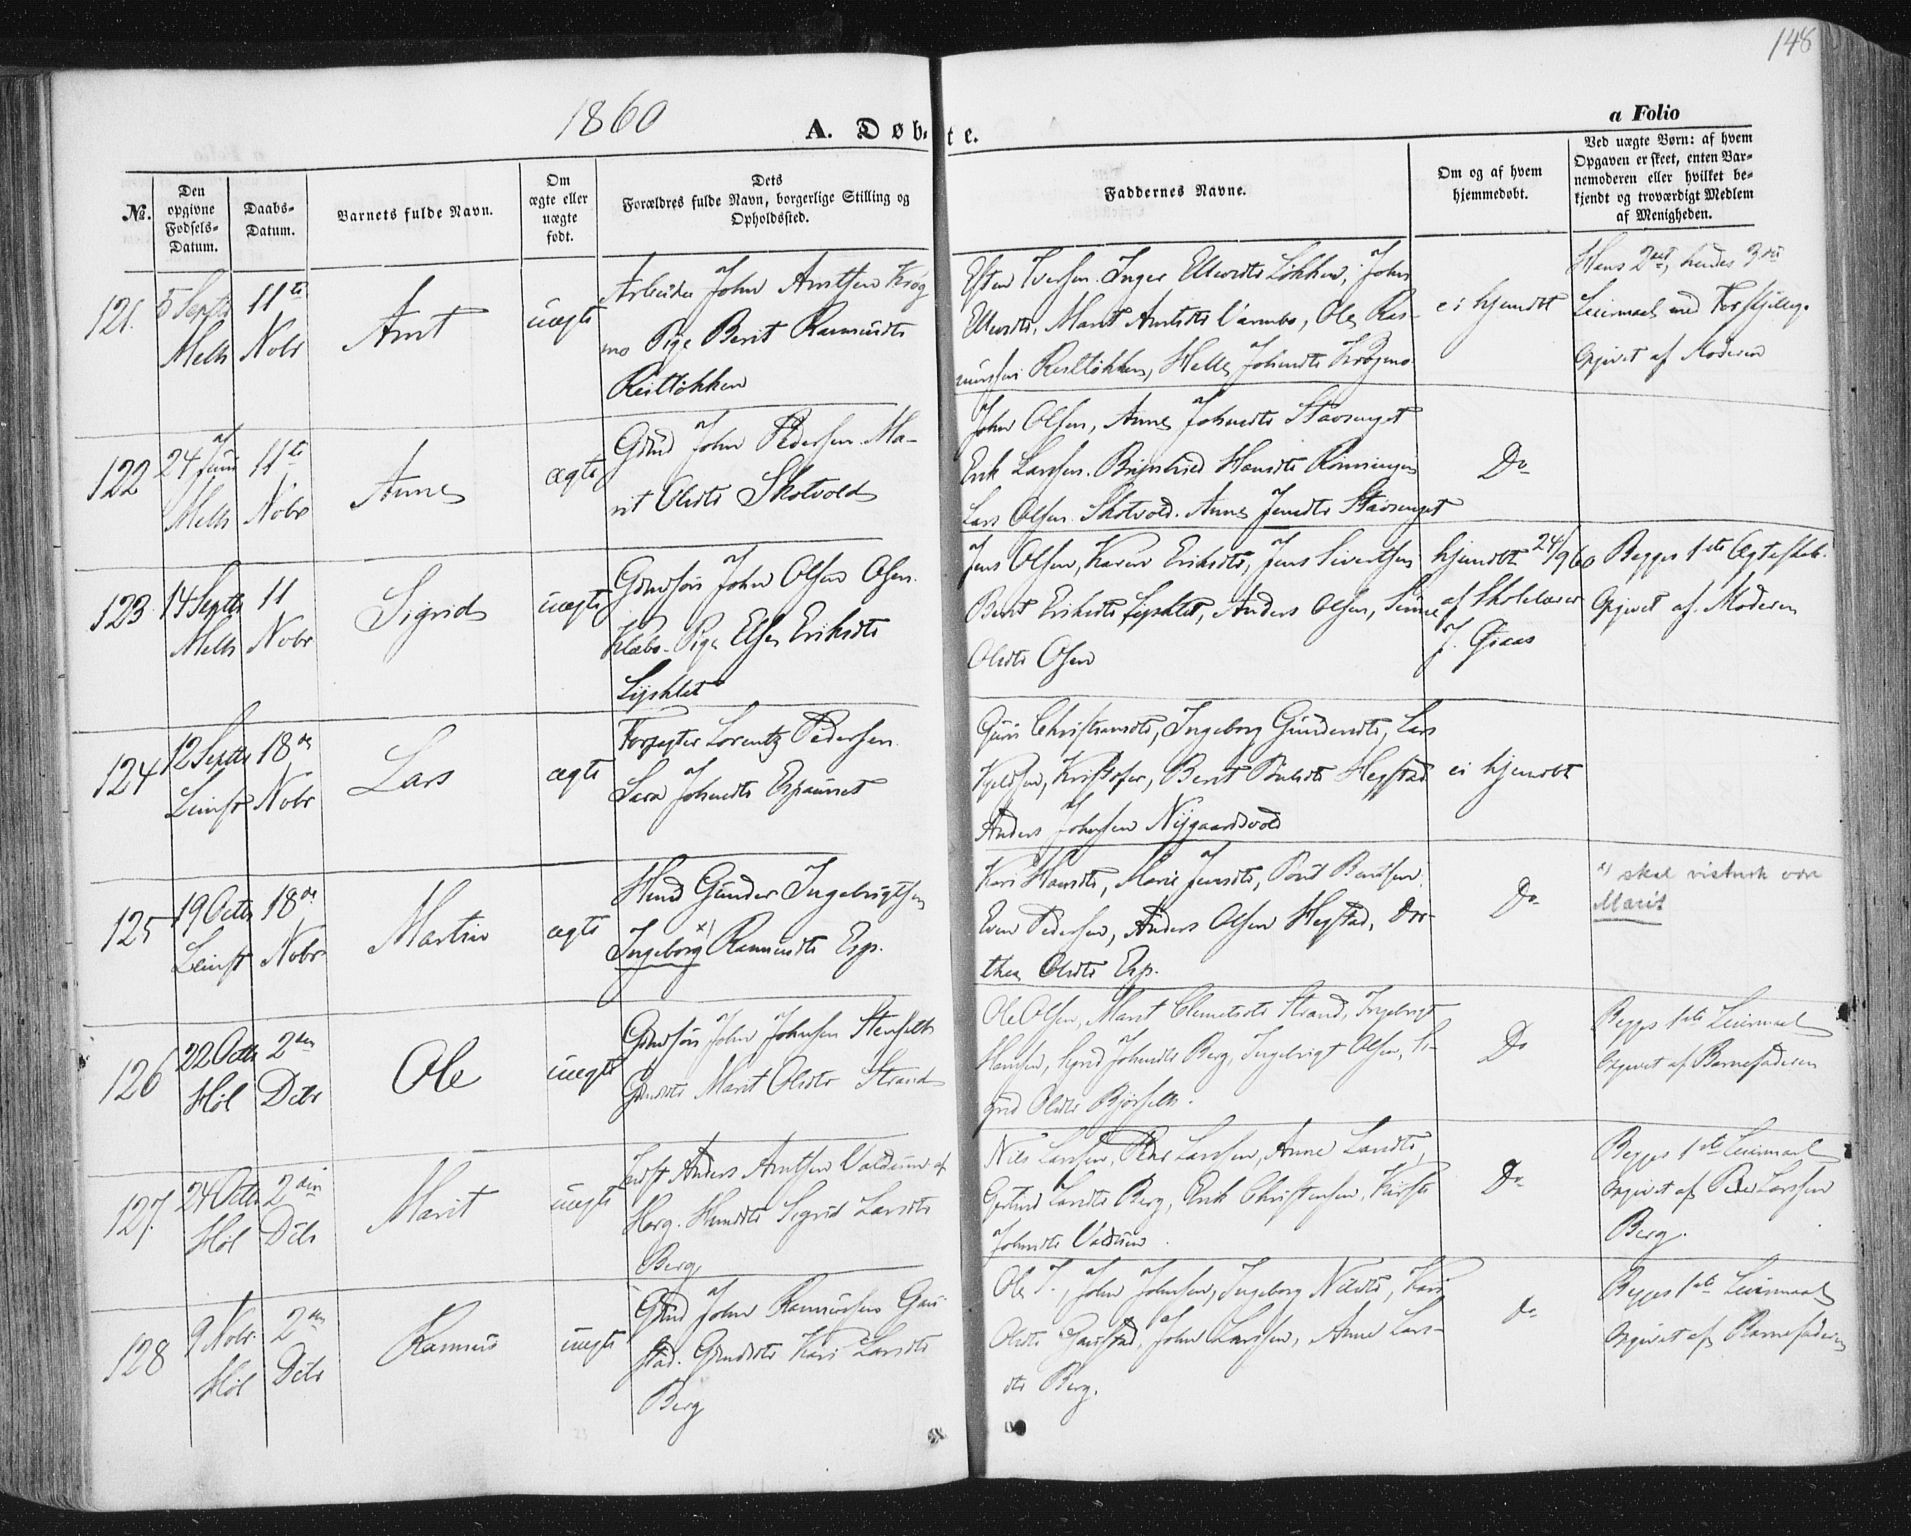 148
1860
A. Døbte.
a Folio
No.
Den opgivne Fødsels-Datum.
Daabs-Datum.
Barnets fulde Navn.
Om ægte eller uægte født.
Dets Forældres fulde Navn, borgerlige Stilling og Opholdssted.
Faddernes Navne.
Om og af hvem hjemmedøbt.
Ved uægte Børn: af hvem Opgaven er skeet, enten Barnemoderen eller hvilket bekjendt og troværdigt Medlem af Menigheden.
121.
5 Septbr
Melh
11te
Nobr
Arnt
uægte
Arbeider John Arntsen Krog
mo Pige Berit Rasmusdtr
Restløkken
Esten Iversen. Inger Ellevsdtr Løkken, John
Ellevsdtr, Marit Arntsdtr Varmbo, Ole Ras-
mussen Restløkken, Johnsdtr Krogmo
ei hjemdøbt
Hans 2det, hendes 3die
Leiermaal med Forskjellige
Opgivet af Moderen
122
24 Juni
Melh
11te
Nobr
Anne
ægte
Gmd John Pedersen. Ma-
rit Olsdtr Skotvold
John Olsen, Anne Johnsdtr Stavsenget
Erik Larssen. Hansdtr Rønningen
Lars Olsen Skotvold. Anne Jensdtr Stavsenget
Do
123
14 Septbr
Melh
11
Nobr
Sigrid
uægte
Gmdsøn John Olsen Osen.
Klæbo. Pige Else Eriksdtr
Lysklet
Jens Olsen, Karen Eriksdtr, Jens Sivertsen
Berit Eriksdtr Lysklet, Anders Olsen,
Olsdtr Osen
hjemdøbt 24/9 60
af Skolelærer
J. Giaas
Begges 1ste Ægteskab.
Opgivet af Moderen
124
12 Septbr
Leinst
18de
Nobr
Lars
ægte
Forpagter Lorentz Pedersen
Sara Johnsdtr Espaunet
Guri Christiansdtr, Ingeborg Gundersdtr, Lars
Kjeldsen, Kristofer, Berit Hegstad
Anders Johnsen Nygaardsvold
ei hjemdøbt
125
19 Octbr
Leinst
18de
Nobr
Martin
ægte
Gunder Ingebrigtsen
Ingeborg x) Rasmusdtr Esp.
Kari Hansdtr, Marie Jensdtr,
Even Pedersen, Anders Olsen Hegstad, Dor-
thea Olsdtr Esp.
Do
x) skal vistnok være
Marit
126
22 Octbr
Høl
2den
Dcbr
Ole
uægte
Gmdsøn John Johnsen
Marit Olsdtr Strand
Ole Olsen, Marit Clemetsdtr Strand, Ingebrigt
Hansen, Johnsdtr Berg, Ingebrigt Olsen, Si-
grid Olsdtr
Do
Begges 1ste Leiermaal
Opgivet af Barnefaderen
127.
24 Octbr
Høl
2den
Dcbr
Marit
uægte
Anders Arntsen Valdum af
Horg. Sigrid Larsdtr
Berg
Nils Larssen, Peder Larssen, Anne Larsdtr,
Gjertrud Larsdtr Berg, Erik Christensen,
Johnsdtr Valdum.
Do
Begges 1ste Leiermaal
Opgivet af Peder Larssen
Berg.
128
9 Nobr.
Høl
2den
Dcbr
Rasmus
uægte
Gmd John Rasmussen Gau
stad. Gmdsdtr Kari Larsdtr
Berg
Ole J., John Johnsen, Ingeborg Nilsdtr, Kari
Olsdtr Gaustad, John Larssen, Anne Lars-
dtr Berg.
do
Begges 1ste Leiermaal
Opgivet af Barnefaderen